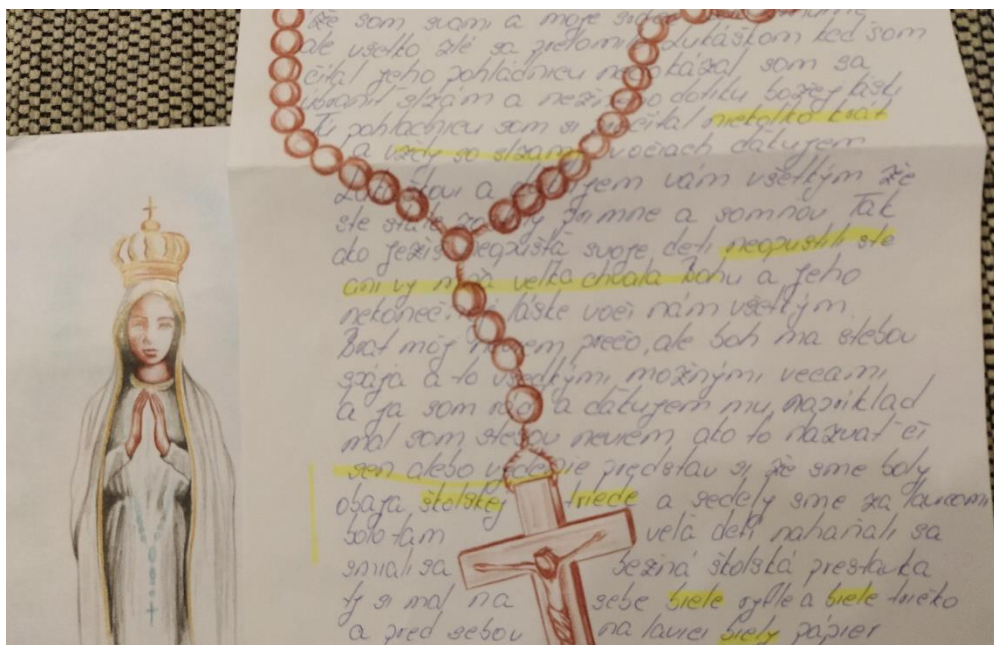 že som svami a moje
ale všetko zlé sa prelomilo lukáškom keď som
čítal jeho pohladnicu nedokázal som sa
úbraniť slzám a nežnému dotiku božej lásky
Tu pohladnicu som si prečítal niekolko krát
a vždy so slzami vočiach dakujem
Lukáškovi a dakujem vám všetkým že
ste stále pri mne a somnou Tak
ako Ježiš neopúšťá svoje deti neopustili ste
ani vy mňa velká chvala Bohu a jeho
nekonečnej láske voči nám všetkým.
Brat môj neviem prečo, ale boh ma stebou
spája a to všetkými možnými vecami
a ja som rád a dákujem mu, napriklad
mal som stebou neviem ako to nazvať či
sen alebo videnie predstav si že sme boly
obaja školskej triede a sedely sme za lavicami
bolo tam vela detí naháňali sa
smiali sa bežná školská prestavka
ty si mal na sebe biele ryfle a biele tričko
a pred sebou na lavici biely pápier